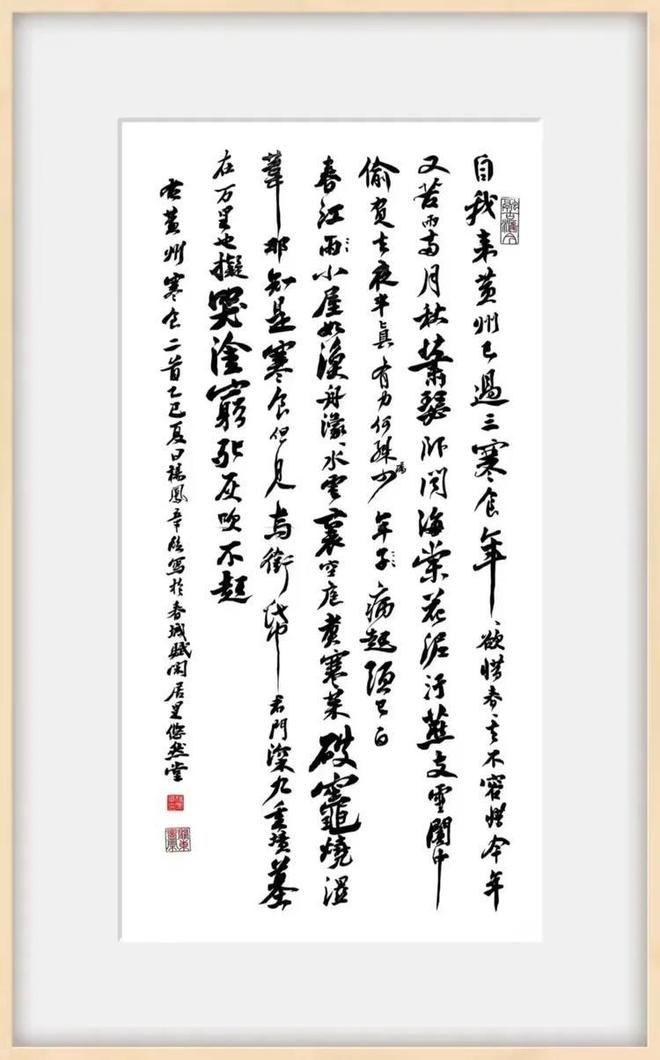 自我来黄州已過三寒食年〻欲惜春〻去不容惜今年
又苦雨兩月秋蕭瑟卧闻海棠花泥汙燕支雪闇中
偷負去夜半真有力何殊病少年子病起頭已白
春江雨〻小屋如漁舟濛〻水雲裏空庖煮寒菜破竈燒濕
葦那知是寒食但見烏銜帋君門深九重墳墓
在万里也擬哭塗窮死灰吹不起
右黄州寒食二首乙巳夏日楊鳳臨寫於春城賦闲居里悠然堂